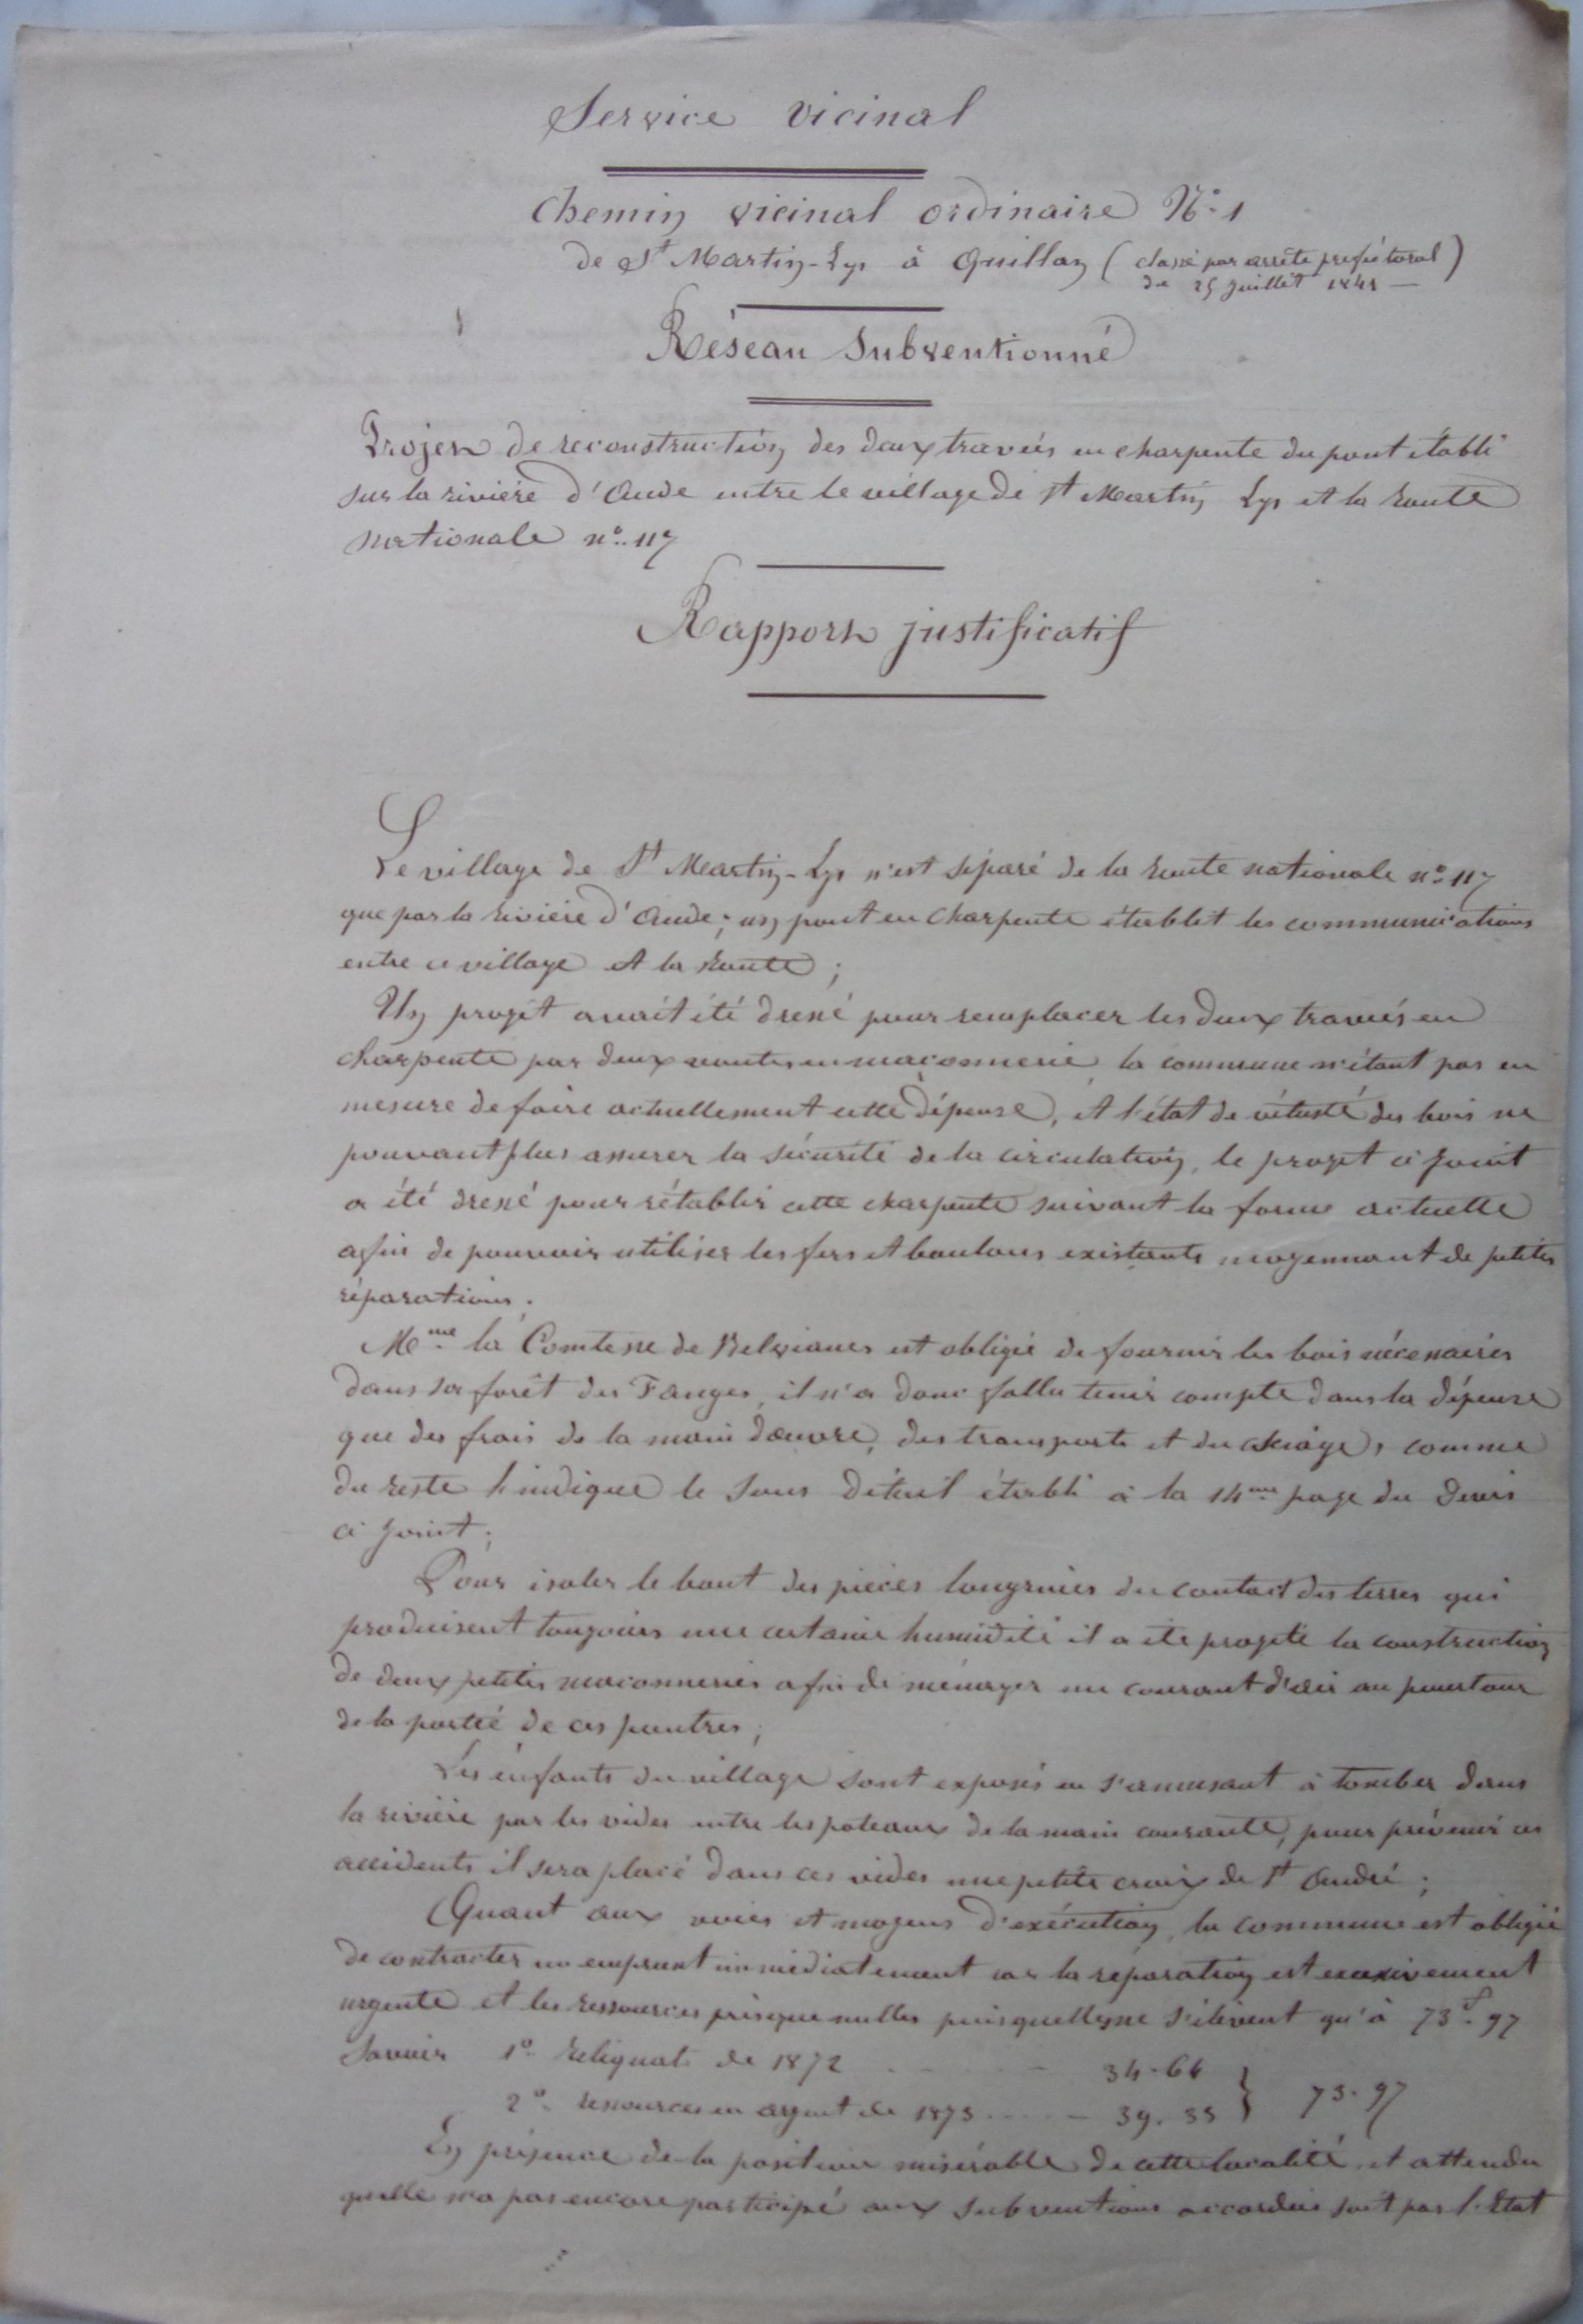 Service vicinal
Chemin vicinal ordinaire N° 1
de St Martin-Lys à Quillan (classé par arrêté préfectoral
de 25 Juillet 1841 —)
Réseau Subventionné
Projet de reconstruction des deux travées en charpente du pont établi
sur la rivière d'Aude entre le village de St Martin Lys et la Route
nationale n° 117
Rapport justificatif
Le village de St Martin-Lys n'est séparé de la Route nationale n° 117
que par la rivière d'Aude ; un pont en charpente établit les communications
entre ce village et la Route ;
Un projet avait été dressé pour remplacer les deux travées en
charpente par deux voutes en maçonnerie, la commune n'étant pas en
mesure de faire actuellement cette dépense, et l'état de vétusté des bois ne
pouvant plus assurer la sécurité de la circulation, le projet ci joint
a été dressé pour rétablir cette charpente suivant la forme actuelle
afin de pouvoir utiliser les fers et boulons existants moyennant de petites
réparations.
Mme la Comtesse de Belvianes est obligée de fournir les bois nécessaires
dans sa forêt des Fanges, il n'a donc fallu tenir compte dans la dépense
que des frais de la main d'œuvre, des transports et du sciage, comme
du reste l'indique le Sous Détail établi à la 14me page du Devis
ci joint ;
Pour isoler le bout des pièces longrines du contact des terres qui
produisent toujours une certaine humidité il a été projeté la construction
de deux petites maçonneries afin de ménager un courant d'air au pourtour
de la portée de ces poutres ;
Les enfants du village sont exposés en s'amusant à tomber dans
la rivière par les vides entre les poteaux de la main courante, pour prévenir ces
accidents il sera placé dans ces vides une petite croix de St André ;
Quant aux voies et moyens d'exécution, la commune est obligée
de contracter un emprunt immédiatement car la réparation est excessivement
urgente et les ressources presque nulles puisqu'elles ne s'élèvent qu'à 73f. 97
Savoir 1° Reliquat de 1872 . . . — 34.64
2° ressources en argent de 1873 . . . . — 39.33 } 73.97
En présence de la position misérable de cette localité, et attendu
qu'elle n'a pas encore participé aux Subventions accordées soit par l'Etat